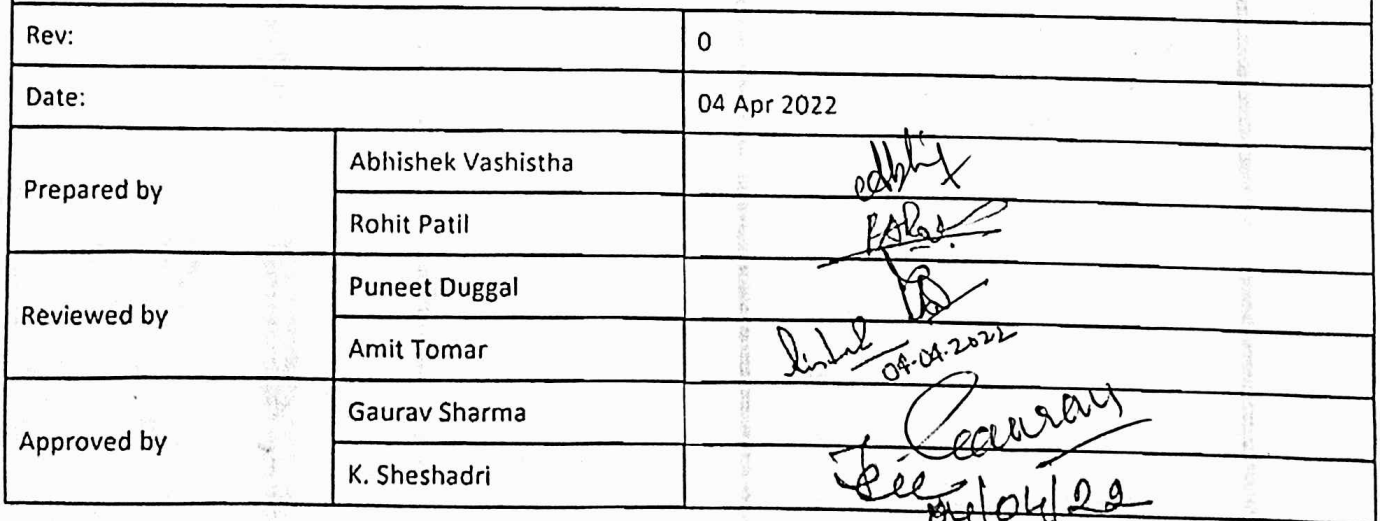 Rev: 0
Date: 04 Apr 2022
Prepared by
Abhishek Vashistha
Rohit Patil
Reviewed by
Puneet Duggal
Amit Tomar
04-04-2022
Approved by
Gaurav Sharma
Gaurav
K. Sheshadri
04/04/22